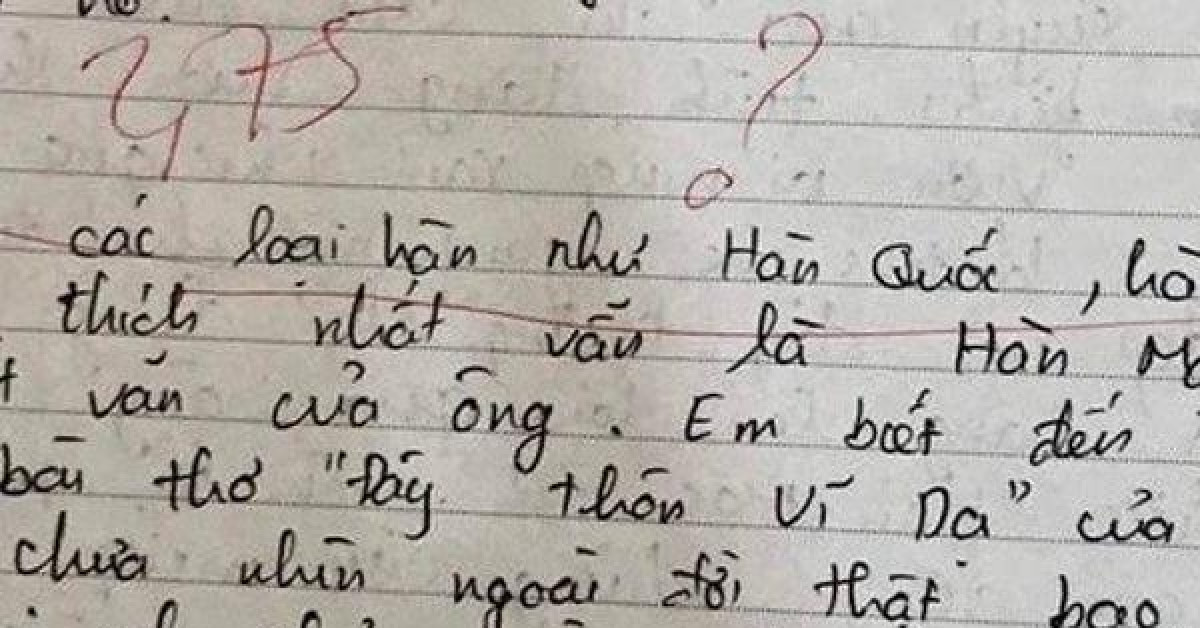 2,75 ?
các loại hàn như Hàn Quốc, hà
thích nhất vẫn là Hàn M
văn của ông. Em biết đến
bài thơ "Đây thôn Vĩ Dạ" của
chưa nhìn ngoài đời thật bao